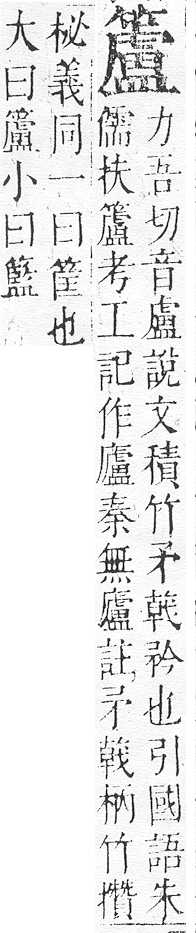 籚
力吾切音盧說文積竹矛戟矜也引國語朱
儒扶籚考工記作廬秦無廬註矛戟柄竹欑
柲義同一曰筐也
大曰籚小曰籃